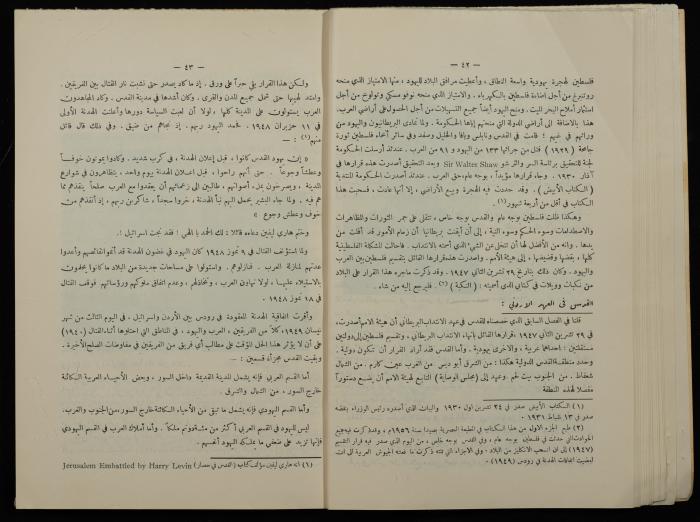 — ٤٢ —
فلسطين لهجرة يهودية واسعة النطاق ، وأعطيت مرافق البلاد لليهود ، منها الامتياز الذي منحه
روتنبرغ من أجل اضاءة فلسطين بالكهرباء . والامتياز الذي منحه نوفومسكي وتولوخ من أجل
استثمار أملاح البحر الميت . ومنح اليهود أيضاً جميع التسهيلات من أجل الحصول على أراضي العرب .
هذا بالاضافة الى أراضي الدولة التي منحتهم إياها الحكومة . ولما تمادى البريطانيون واليهود من
ورائهم في غيهم ؛ قامت في القدس ونابلس ويافا والخليل وصفد وفي سائر أنحاء فلسطين ثورة
جامحة ( ١٩٢٩ ) قتل من جرائها ١٣٣ من اليهود و ٩١ من العرب . عندئذ أرسلت الحكومة
لجنة للتحقيق برئاسة السر والتر شو Sir Walter Shaw وبعد التحقيق أصدرت هذه قرارها في
آذار ١٩٣٠ . وجاء قرارها مؤيداً ، بوجه عام، حق العرب . عندئذ أصدرت الحكومة المنتدبة
( الكتاب الأبيض ) . وقد حددت فيه الهجرة وبيع الأراضي ، إلا أنها عادت ، فسحبت هذا
الكتاب في أقل من أربعة شهور (١) .
وهكذا ظلت فلسطين بوجه عام والقدس بوجه خاص ، تتقلى على جمر الثورات والمظاهرات
والاصطدامات وسوء الحكم وسوء النية ، إلى أن أيقنت بريطانيا أن زمام الأمور قد أفلت من
يدها . وانه من الأفضل لها أن تتخلى عن الشيء الذي أسمته بالانتداب . فأحالت المشكلة الفلسطينية
كلها ، بغضها وقضيضها ، إلى هيئة الأمم . وأصدرت هذه قرارها القائل بتقسيم فلسطين بين العرب
واليهود . وكان ذلك بتاريخ ٢٩ تشرين الثاني ١٩٤٧ . وقد ذكرت ما جره هذا القرار على البلاد
من نكبات وويلات في كتابي الذي أسميته : ( النكبة ) (٢) . فليرجع إليه من شاء .
القدس في العهد الأردني :
قلنا في الفصل السابق الذي خصصناه للقدس في عهد الانتداب البريطاني أن هيئة الامم أصدرت،
في ٢٩ تشرين الثاني ١٩٤٧، قرارها القائل بانهاء الانتداب البريطاني ، وتقسيم فلسطين إلى دولتين
مستقلتين : احداهما عربية ، والاخرى يهودية . وأما القدس فقد أراد القرار أن تكون دولية .
وحدد منطقة القدس الدولية هكذا : من الشرق أبو ديس . من الغرب عين كارم . من الشمال
شعفاط . من الجنوب بيت لحم . وعهد إلى (مجلس الوصاية) التابع لهيئة الأمم أن يضع دستوراً
مفصلا لهذه المنطقة
(١) الكتاب الأبيض صدر في ٢٤ تشرين اول ١٩٣٠ والبيان الذي أصدره رئيس الوزراء بنقضه
صدر في ١٣ شباط ١٩٣١ .
(٢) طبع الجزء الاول من هذا الكتاب في المطبعة العصرية بصيدا سنة ١٩٥٦م ، وقد ذكرت فيه جميع
الحوادث التي حدثت في فلسطين بوجه عام ، وفي القدس بوجه خاص ، من اليوم الذي صدر فيه قرار التقسيم
(١٩٤٧) إلى ان انسحب الانكليز من البلاد ؛ وفي الاجزاء التي تلته ذكرت ما فعلته الجيوش العربية الى ان
امضيت اتفاقات الهدنة في رودس (١٩٤٩) .
— ٤٣ —
ولكن هذا القرار بقي حبراً على ورق . إذ ما كاد يصدر حتى نشبت نار القتال بين الفريقين .
وامتد لهيبها حتى شمل جميع المدن والقرى . وكان أشدها في مدينة القدس . وكاد المجاهدون
العرب يستولون على المدينة كلها ، لولا أن لعبت السياسة دورها وأعلنت الهدنة الأولى
في ١١ حزيران ١٩٤٨ . فحمد اليهود ربهم . إذ نجاهم من ضيق . وفي ذلك قال قائل
منهم(١) : —
« إن يهود القدس كانوا ، قبل إعلان الهدنة ، في كرب شديد . وكادوا يموتون خوفاً
وعطشاً وجوعاً . حتى أنهم راحوا ، قبل اعلان الهدنة بيوم واحد، يتظاهرون في شوارع
المدينة ، ويصرخون بملء أصواتهم ، طالبين الى زعمائهم أن يعقدوا مع العرب صلحاً ينقذهم مما
هم فيه . ولما جاء البشير يحمل اليهم نبأ الهدنة ، خروا سجداً ، شاكرين ربهم ، إذ أنقذهم من
خوف وعطش وجوع »
وختم هاري ليفين دعاءه قائلا : لك الحمد يا إلهي ! فقد نجت اسرائيل !.
ولما استؤنف القتال في ٩ تموز ١٩٤٨ كان اليهود في غضون الهدنة قد أتموا نقائصهم وأعدوا
عدتهم لمنازلة العرب . فنازلوهم . واستولوا على مساحات جديدة من البلاد ما كانوا يحلمون
بالاستيلاء عليها ، لولا تهاون العرب ، وتخاذلهم ، وعدم اتفاق ملوكهم ورؤسائهم فوقف القتال
في ١٨ تموز ١٩٤٨ .
وأقرت اتفاقية الهدنة المعقودة في رودس بين الأردن واسرائيل ، في اليوم الثالث من شهر
نيسان ١٩٤٩، كلاً من الفريقين ، العرب واليهود ، في المناطق التي احتلوها أثناء القتال ،
على أن لا يؤثر هذا الحل المؤقت على مطالب أي فريق من الفريقين في مفاوضات الصلح الأخيرة .
وبقيت القدس مجزأة قسمين : —
أما القسم العربي فإنه يشمل المدينة القديمة داخل السور ، وبعض الأحياء العربية الكائنة
خارج السور ، من الشمال والشرق .
وأما القسم اليهودي فإنه يشمل ما تبقى من الأحياء الكائنة خارج السور ، من الجنوب والغرب.
ليس لليهود في القسم العربي أكثر من دونم ملكاً . وأما أملاك العرب في القسم اليهودي
فإنها تزيد على ضعفي ما يملكه اليهود أنفسهم .
(١) انه هاري ليفين مؤلف كتاب (القدس في حصار) Jerusalem Embattled by Harry Levin